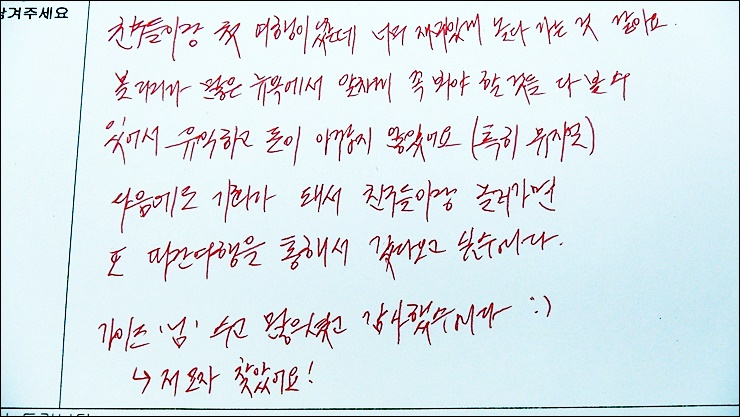 남겨주세요
친구들이랑 첫 여행이었는데 너무 재미있게 놀다 가는 것 같아요.
볼거리가 많은 뉴욕에서 알차게 꼭 봐야 할 것을 다 볼 수
있어서 유익하고 돈이 아깝지 않았어요 (특히 뮤지컬)
다음에도 기회가 돼서 친구들이랑 놀러가면
또 여행을 통해서 갔다오고 싶습니다.
가이드 '님' 수고 많으셨고 감사했습니다 :)
↳ 저 모자 찾았어요!